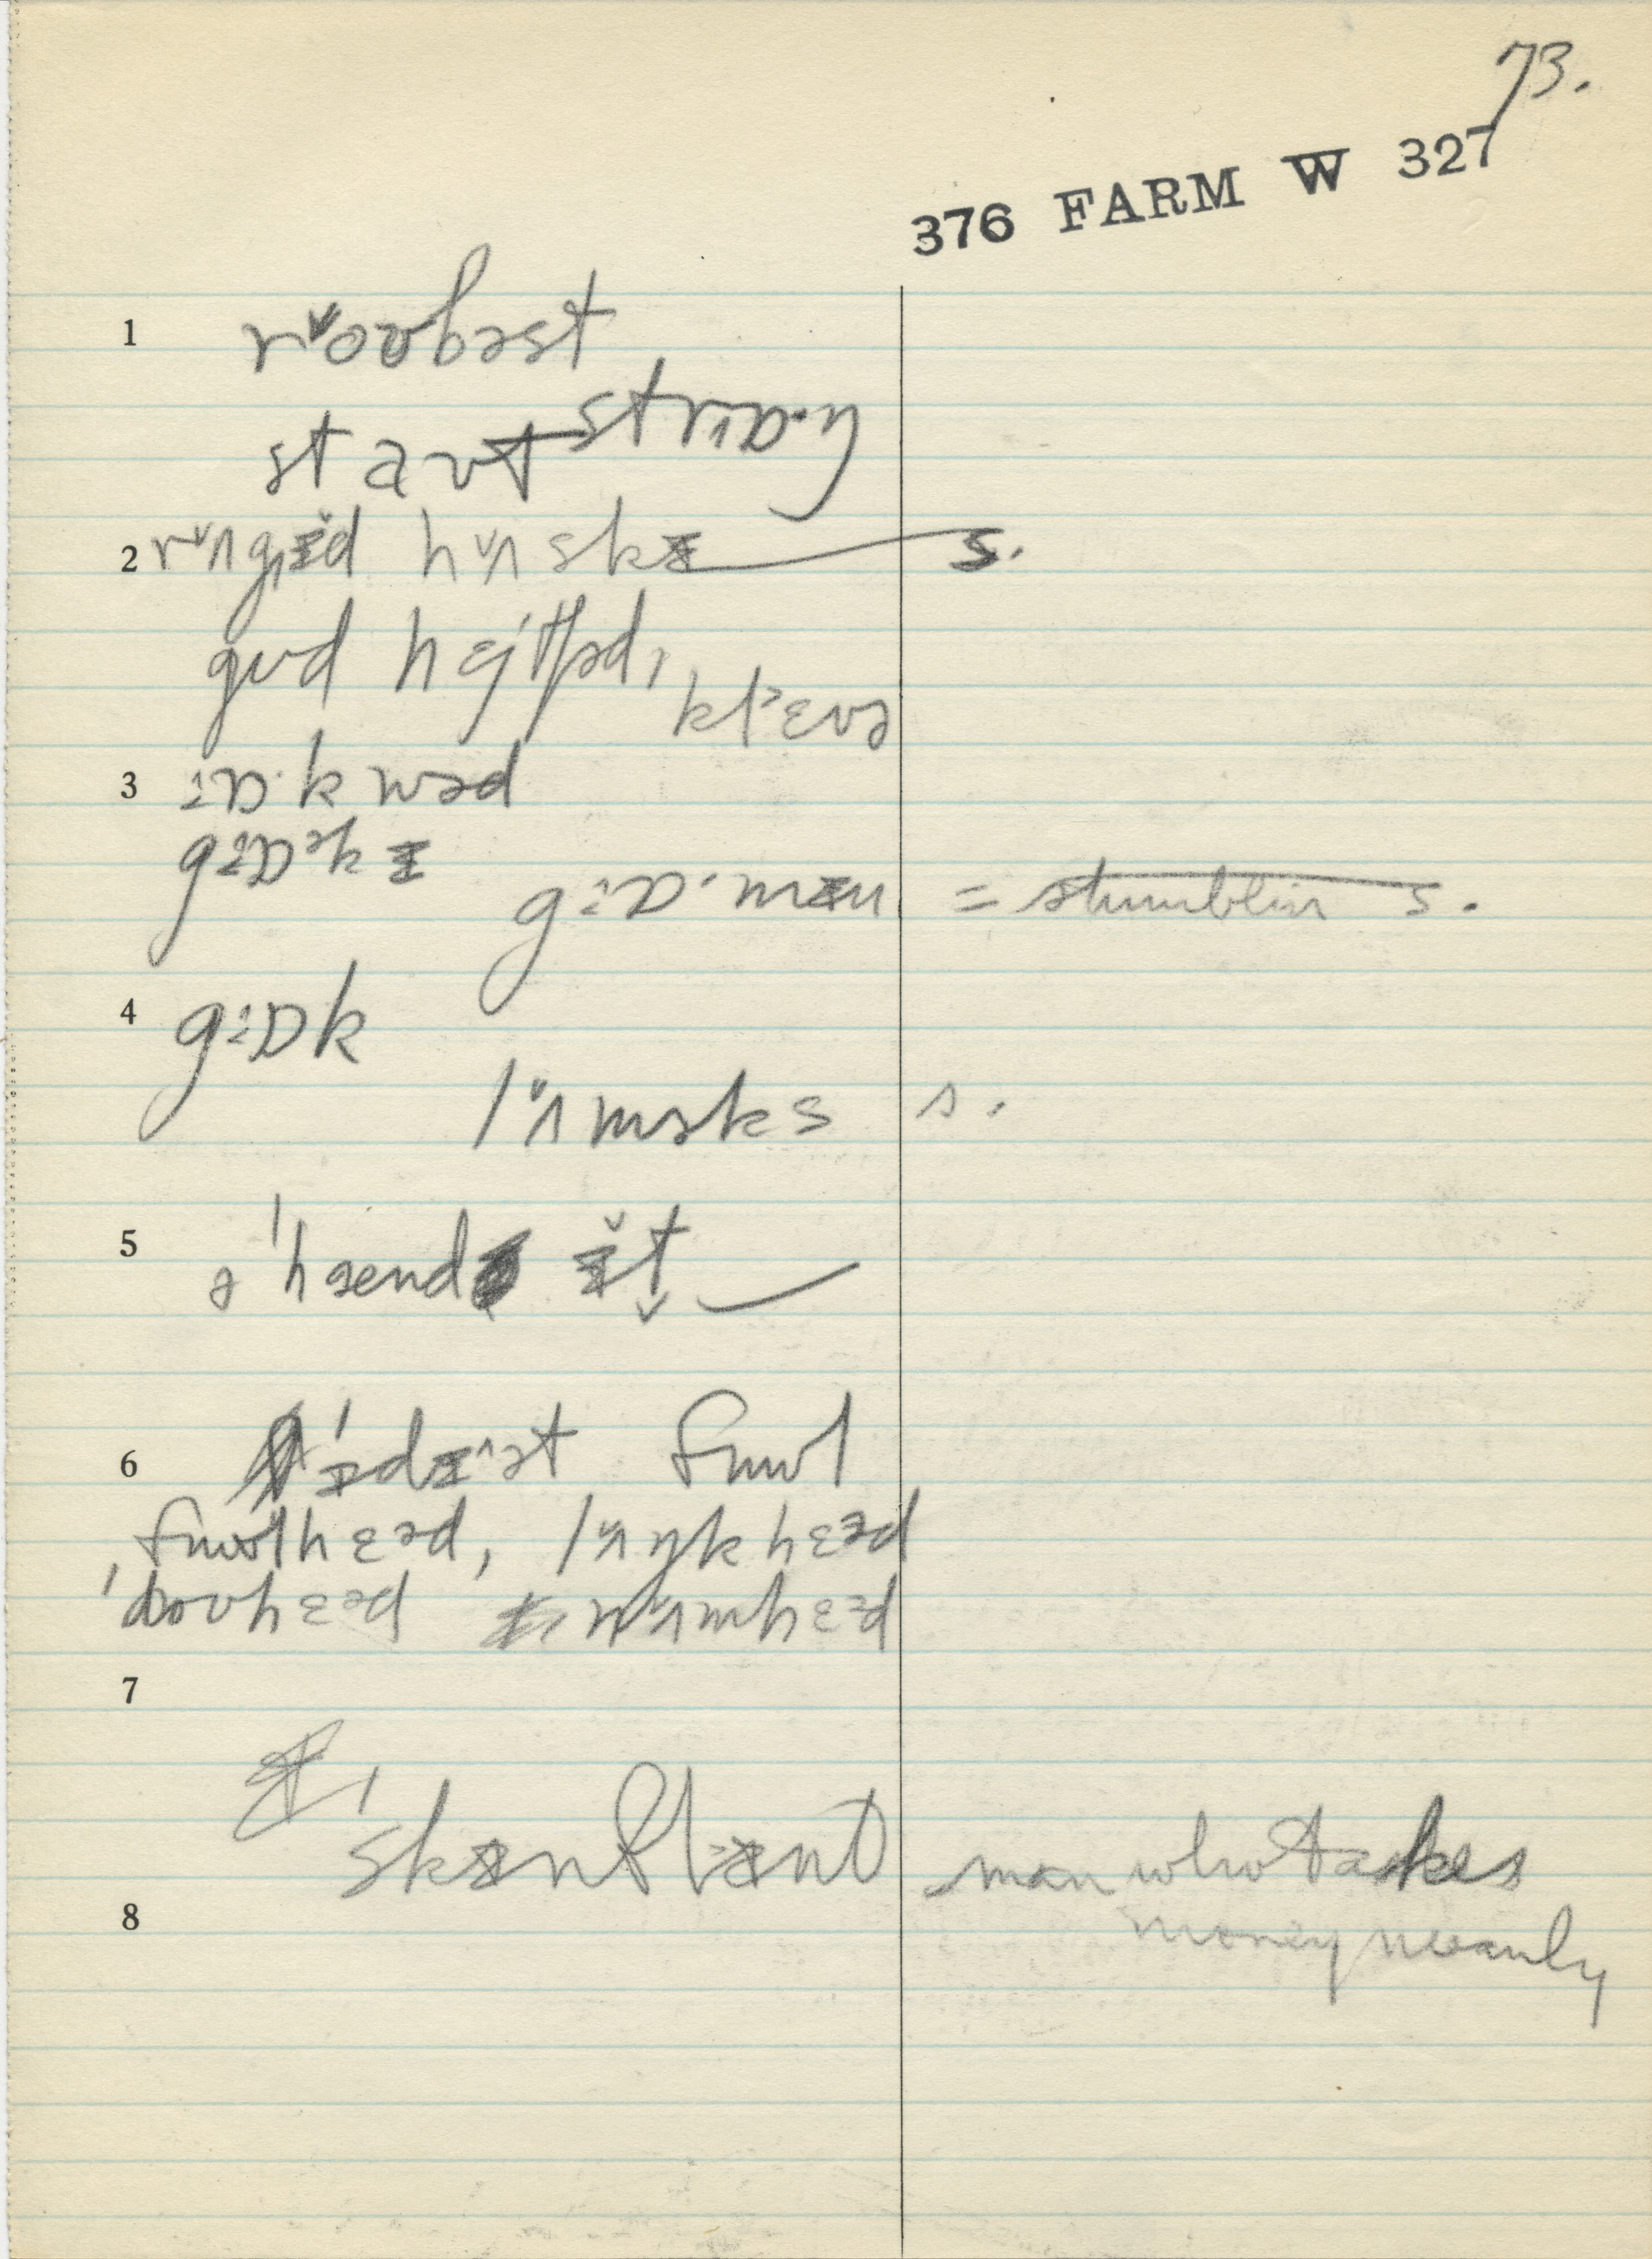 73.
376 FARM W 327
1 rᵛoʊbəst
staʊt strɒ·ŋ
2 rᵛʌgɪ̆d hᵛʌskɪ s.
gʊd hɛjθəd, klˀɛvə
3 ɒ·kwəd
gɒᵊkɪ
gɒ·mɪn = stumblin s.
4 gɒk
lᵛʌməks s.
5 əˈhænd ɪ̆t
6 ˈɪdɪˆət fuʊl
ˈfuʊlhɛəd, lᵛʌŋkhɛəd
ˈdoʊhɛəd nᵛʌmhɛəd
7
ˈskɪnflɪnt man who takes
money meanly
8